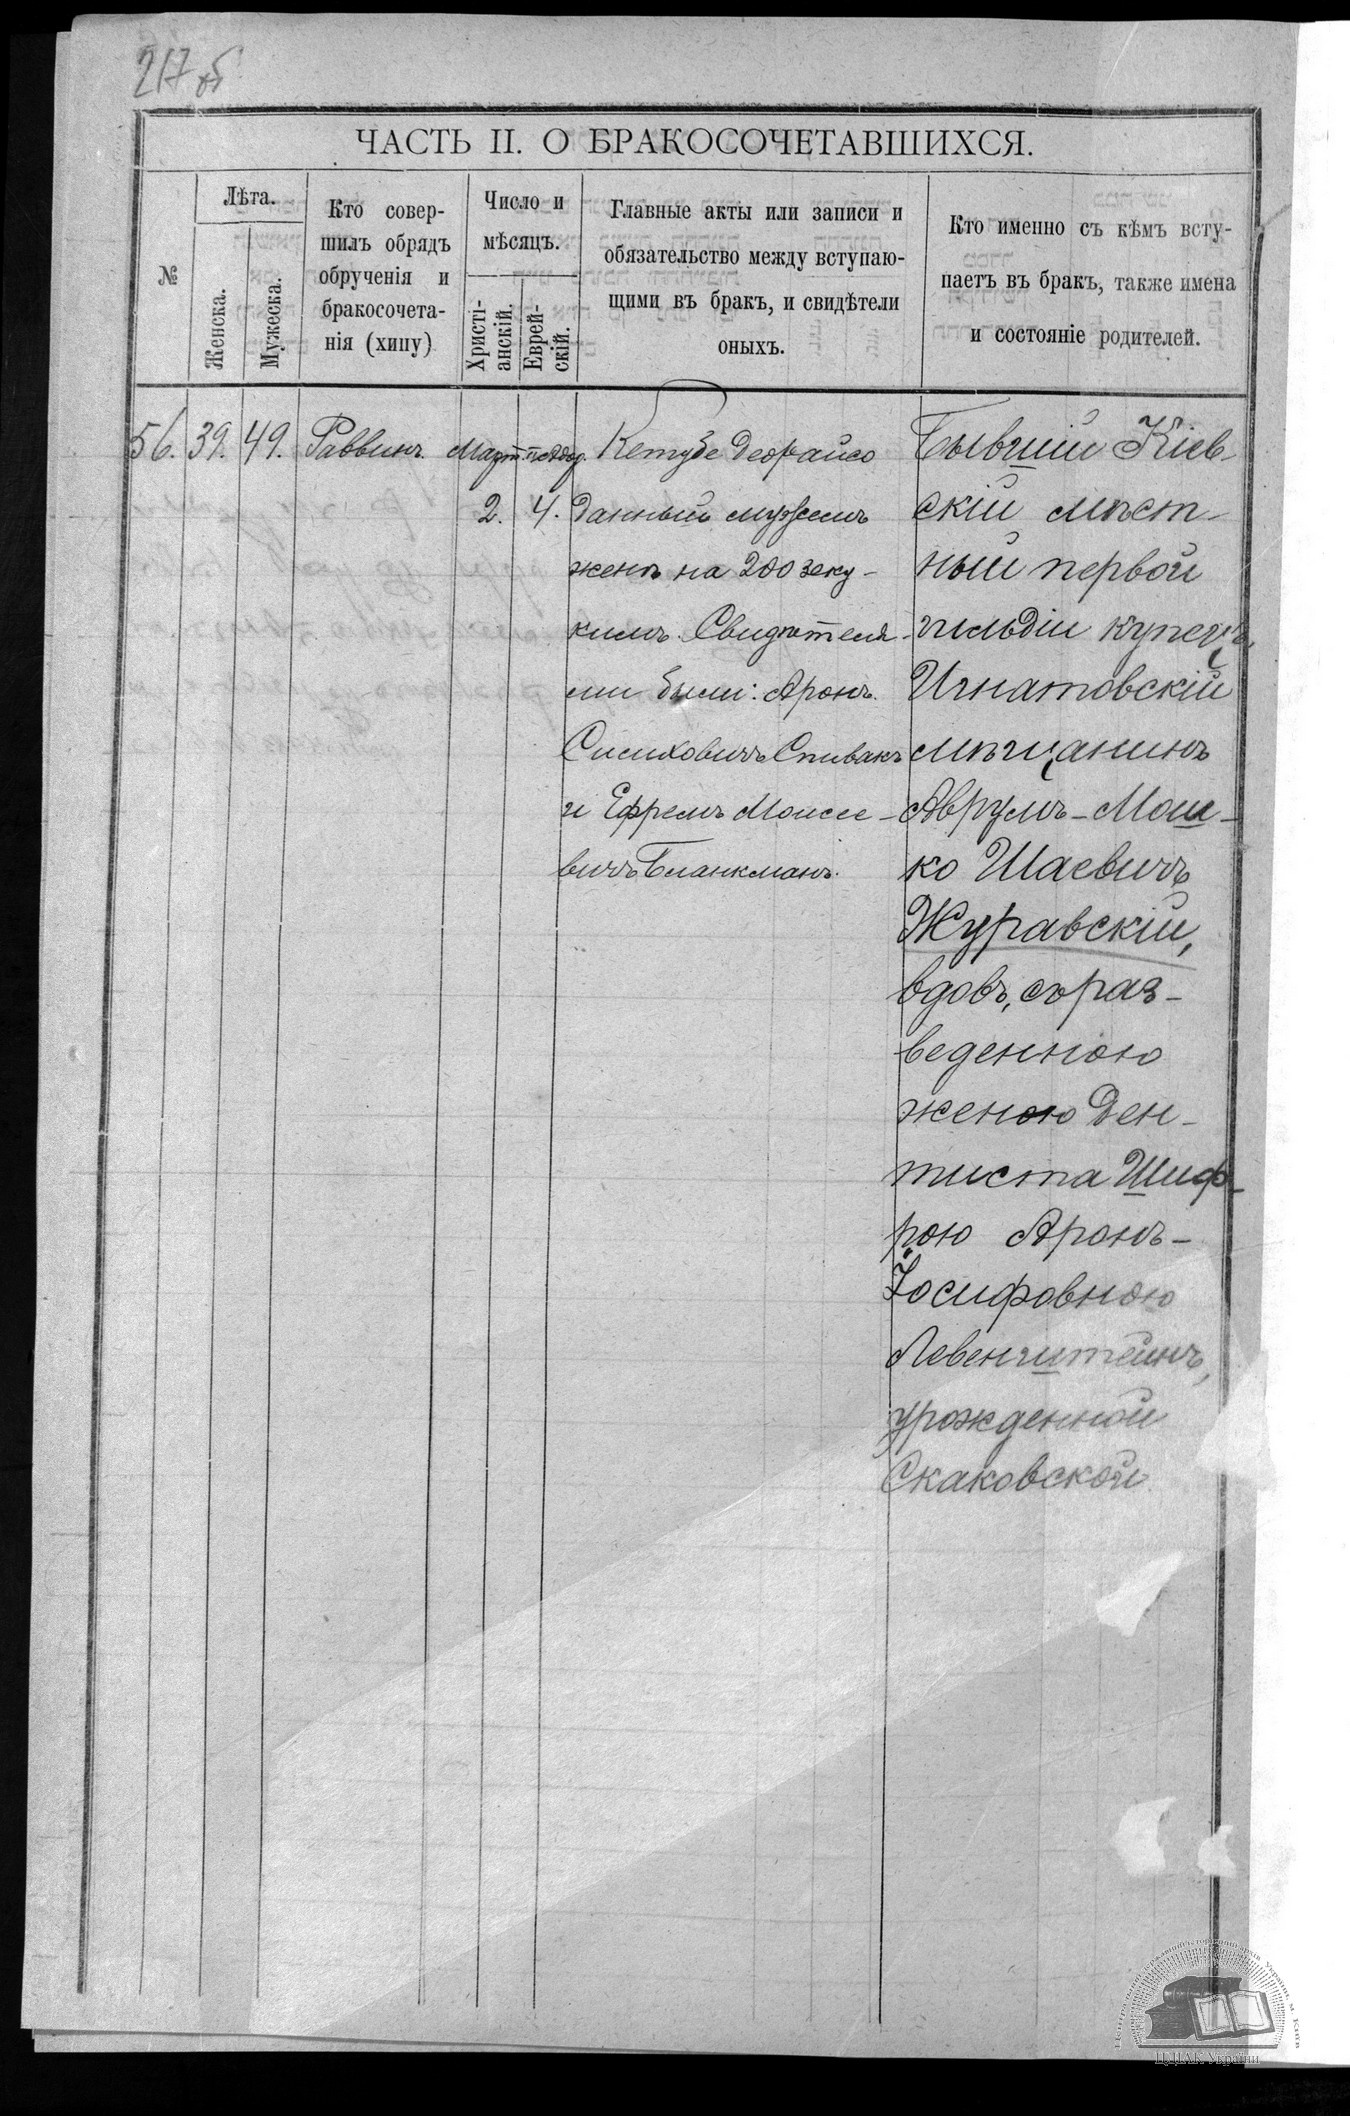 217 об
ЧАСТЬ II. О БРАКОСОЧЕТАВШИХСЯ.
№
Лѣта.
Женска.
Мужеска.
Кто совер-
шилъ обрядъ
обрученія и
бракосочета-
нія (хипу)
Число и
мѣсяцъ.
Христі-
анскій.
Еврей-
скій.
Главные акты или записи и
обязательство между вступаю-
щими въ бракъ, и свидѣтели
оныхъ.
Кто именно съ кѣмъ всту-
паетъ въ бракъ, также имена
и состояніе родителей.
56.
39.
49.
Раввинъ.
Март
2.
4.
Кетубе Деорайсо
данный мужемъ
женѣ на 200 зеку-
кимъ. Свидѣтеля-
ми были: Аронъ
Сисиховичъ Спивакъ
и Ефремъ Моисее-
вичъ Бланкманъ.
Бывшій Кіев-
скій мѣст-
ный первой
гильдіи купецъ,
Игнатовскій
мѣщанинъ
Аврумъ-Мош-
ко Шаевичъ
Журавскій,
вдовъ, съ раз-
веденною
женою Ден-
тиста Шиф-
рою Аронъ-
Іосифовною
Левенштейнъ,
урожденной
Скаковской
ЦДІАК України